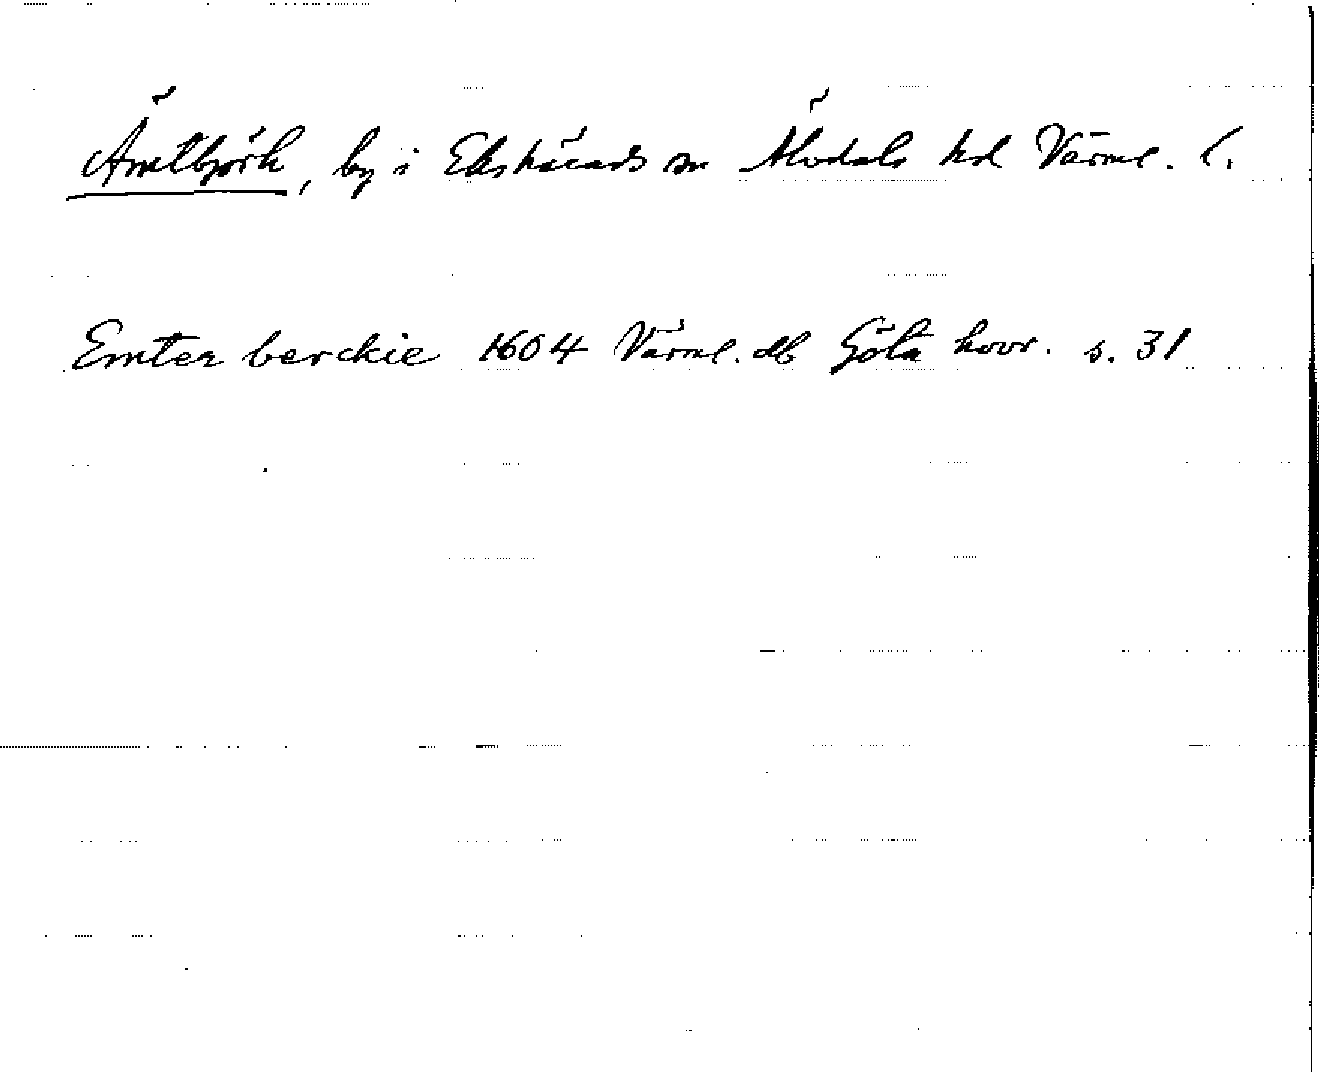 Ämtbjörk, by i Ekshärads sn Älvdals hd Värml. l.
Emter berckie 1604 Värml. db Göta hovr. s. 31